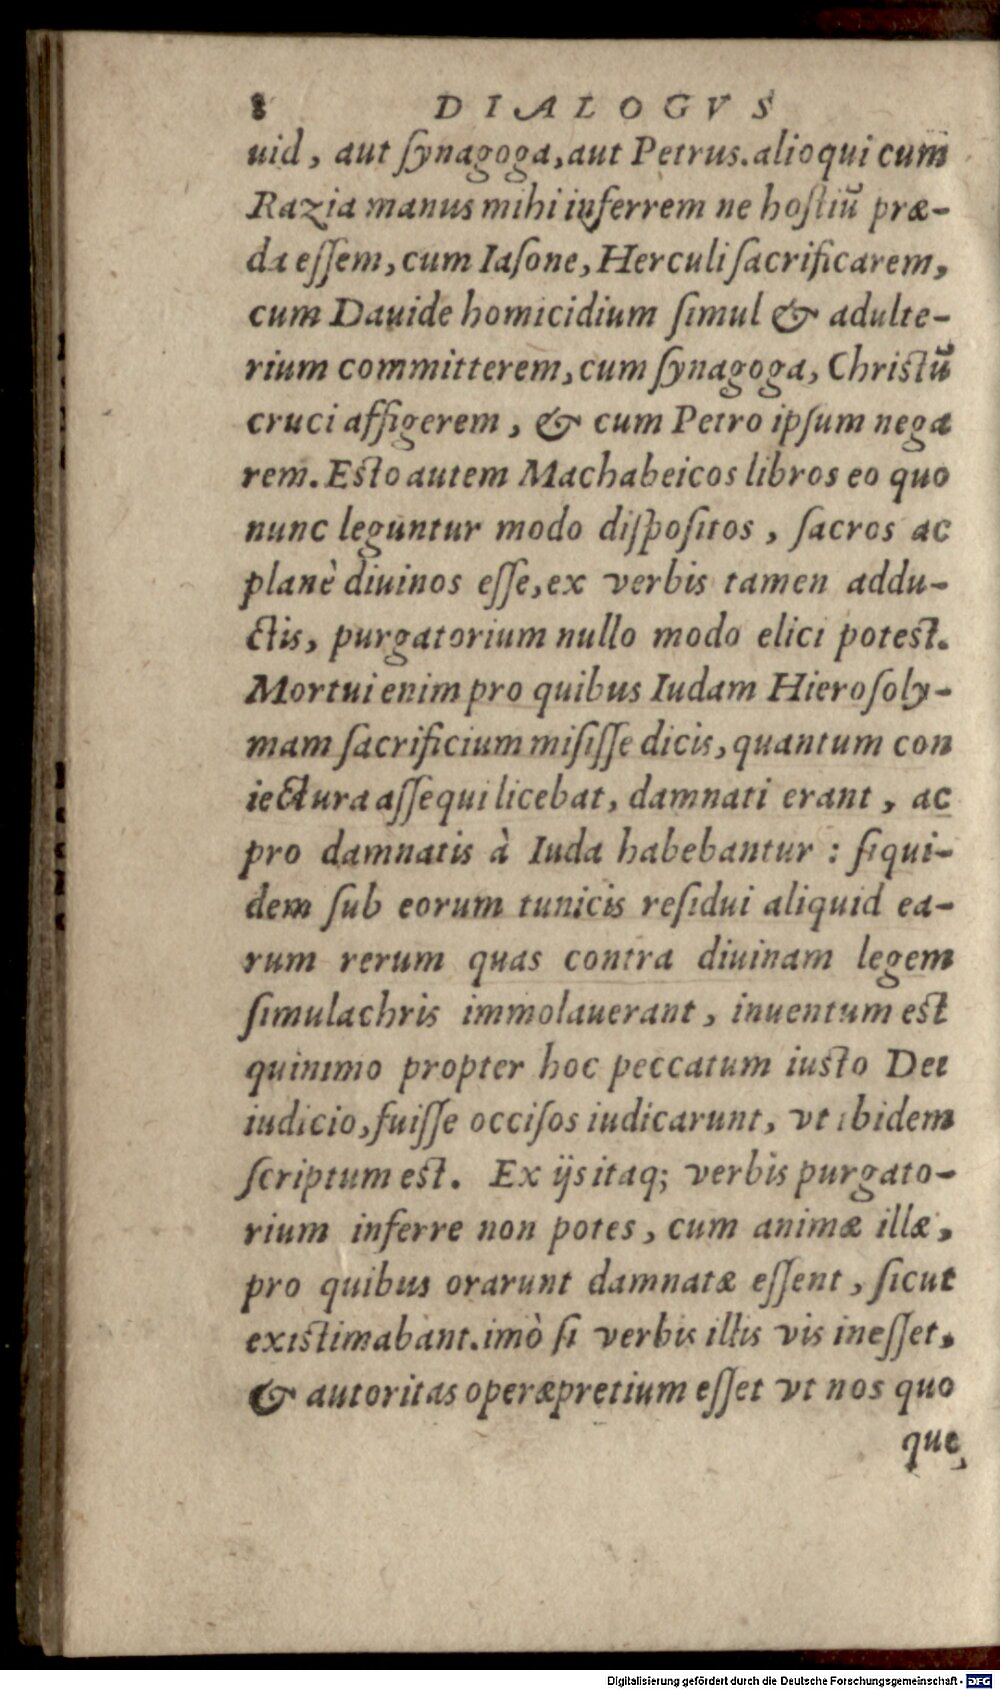 8 DIALOGVS
uid, aut ſynagoga, aut Petrus. alioqui cum
Razia manus mihi inferrem ne hoſtiũ præ-
da eſſem, cum Iaſone, Herculi ſacrificarem,
cum Dauide homicidium ſimul & adulte-
rium committerem, cum ſynagoga, Chriſtũ
cruci affigerem, & cum Petro ipſum nega
rem. Eſto autem Machabeicos libros eo quo
nunc leguntur modo diſpoſitos, ſacros ac
planè diuinos eſſe, ex verbis tamen addu-
ctis, purgatorium nullo modo elici poteſt.
Mortui enim pro quibus Iudam Hieroſoly-
mam ſacrificium miſiſſe dicis, quantum con
iectura aſſequi licebat, damnati erant, ac
pro damnatis à Iuda habebantur : ſiqui-
dem ſub eorum tunicis reſidui aliquid ea-
rum rerum quas contra diuinam legem
ſimulachris immolauerant, inuentum eſt
quinimo propter hoc peccatum iuſto Dei
iudicio, fuiſſe occiſos iudicarunt, vt ibidem
ſcriptum eſt. Ex ijs itaq; verbis purgato-
rium inferre non potes, cum animæ illæ,
pro quibus orarunt damnatæ eſſent, ſicut
exiſtimabant. imò ſi verbis illis vis ineſſet,
& autoritas operæpretium eſſet vt nos quo
que,
Digitalisierung gefördert durch die Deutsche Forschungsgemeinschaft - DFG